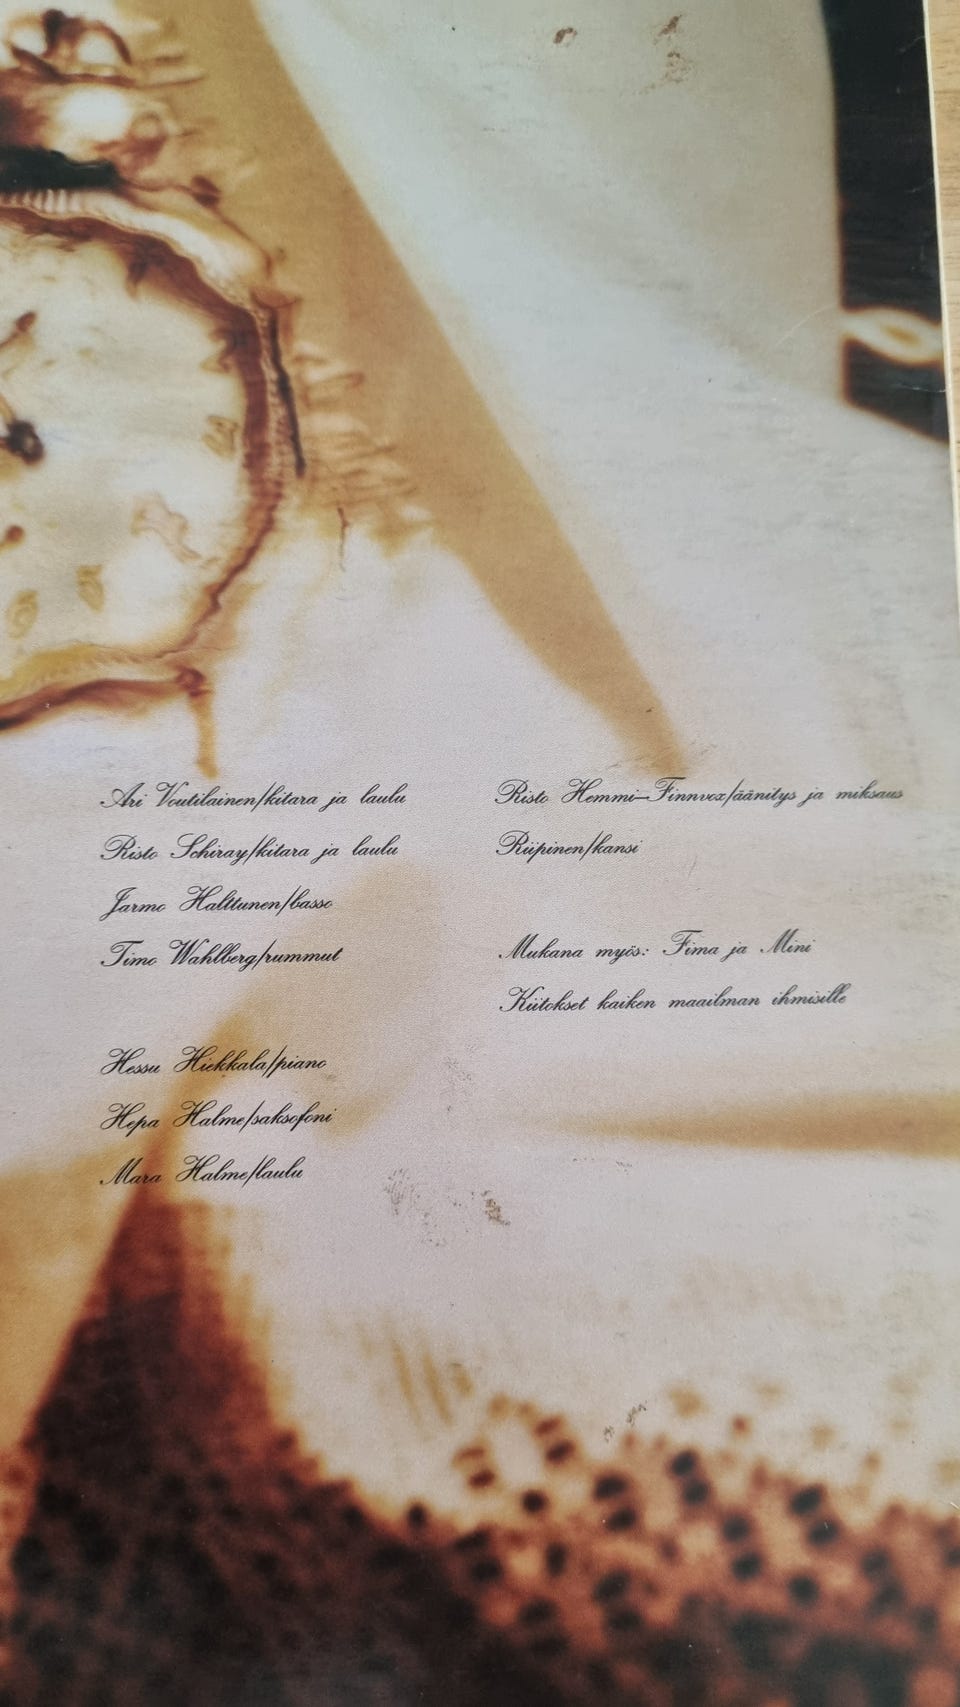 Ari Voutilainen/kitara ja laulu
Risto Schiray/kitara ja laulu
Jarmo Halttunen/basso
Timo Wahlberg/rummut
Hessu Hiekkala/piano
Hepa Halme/saksofoni
Mara Halme/laulu
Risto Hemmi–Finnvox/äänitys ja miksaus
Riipinen/kansi
Mukana myös: Fima ja Mini
Kiitokset kaiken maailman ihmisille